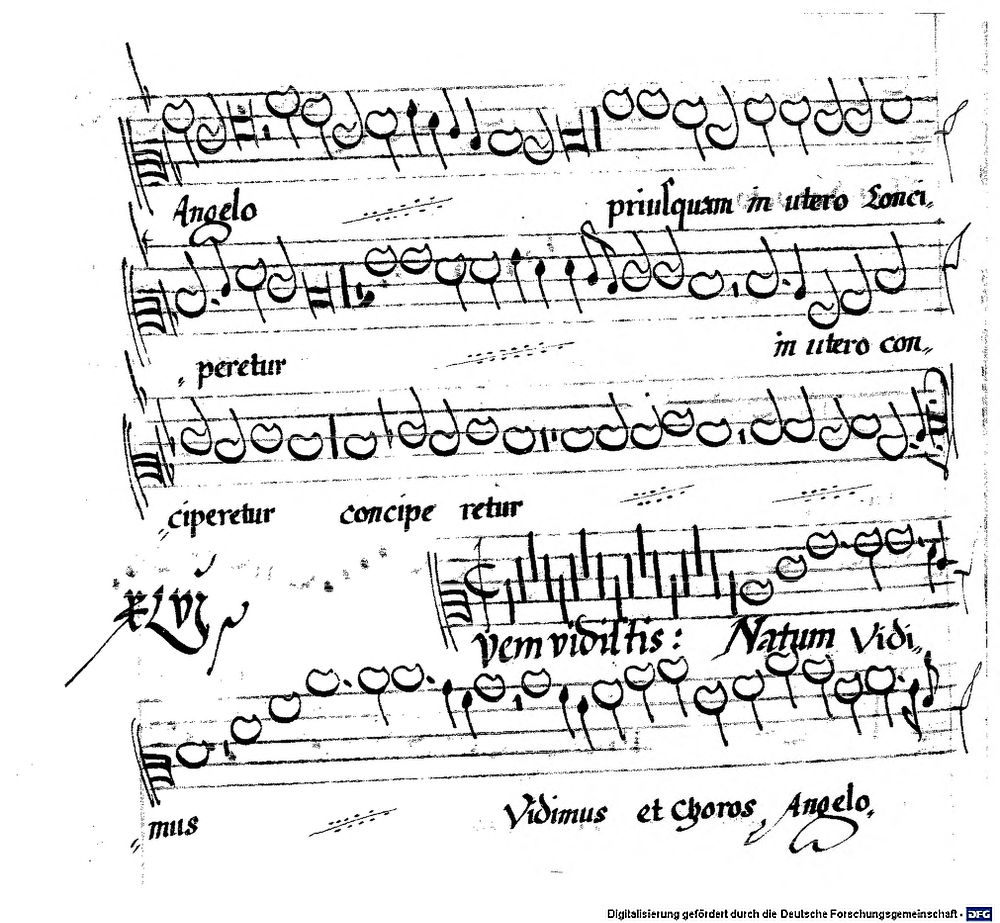 Angelo priusquam in utero Conci,,
,, peretur in utero con,,
,, ciperetur concipe retur
XLVI
vem vidistis: Natum Vidi,,
,, mus Vidimus et Choros Angelo,,
Digitalisierung gefördert durch die Deutsche Forschungsgemeinschaft - DFG